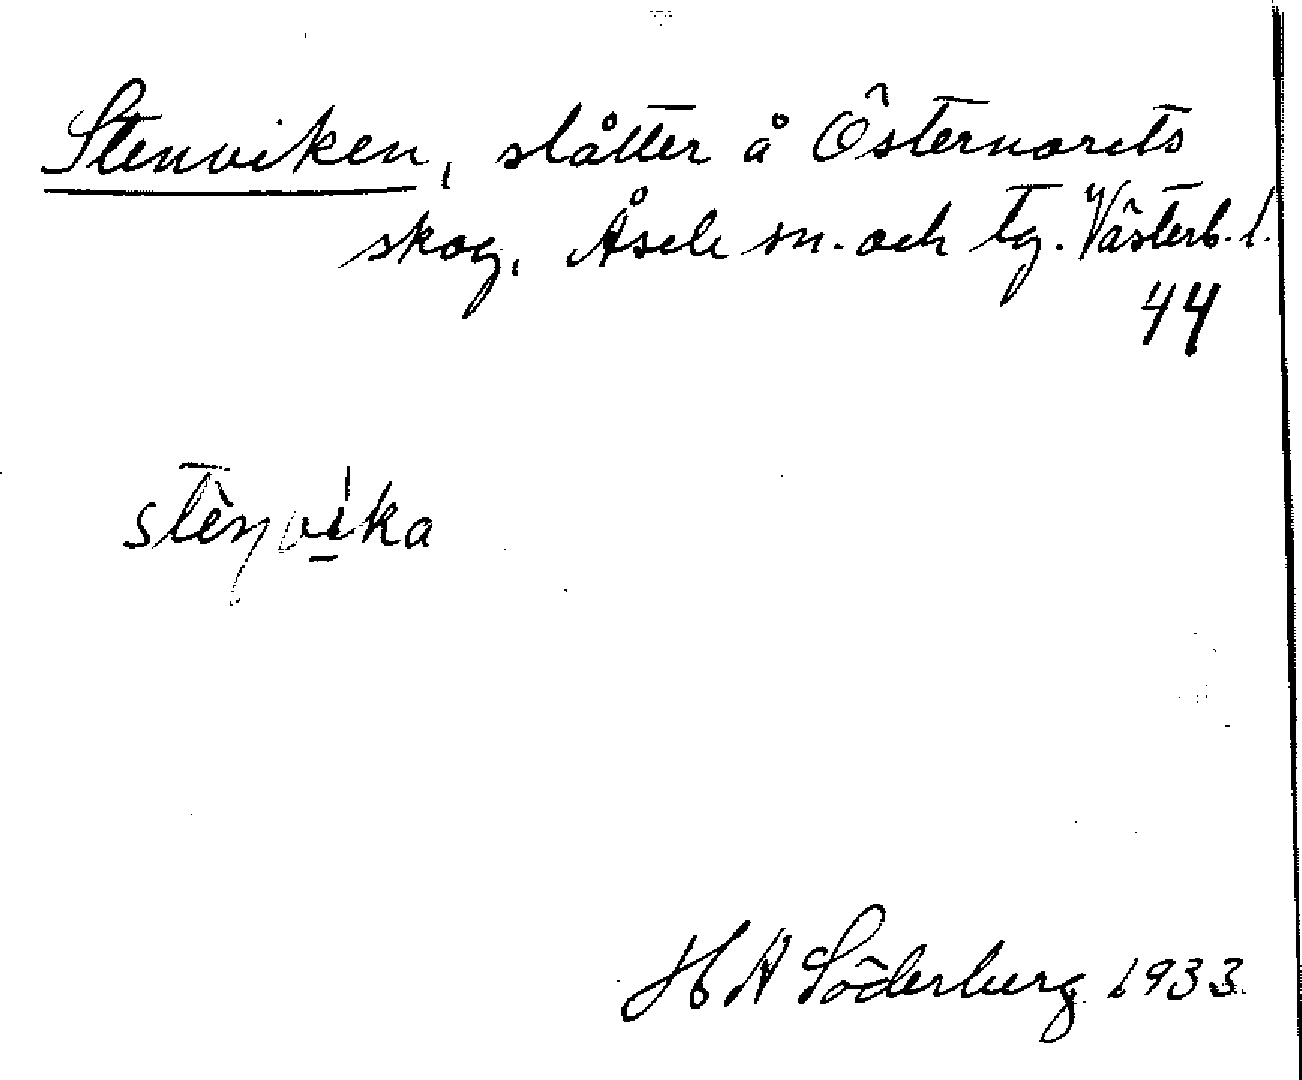 Stenviken, slåtter å Östernorets
skog, Åsele sn. och tg. Västerb. l.
44
stènvika
H A Söderberg 1933.